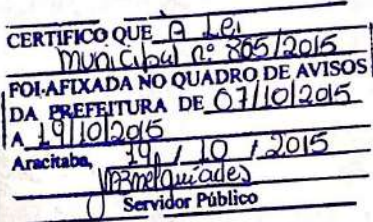 CERTIFICO QUE A Lei
municipal nº 865/2015
FOI AFIXADA NO QUADRO DE AVISOS
DA PREFEITURA DE 07/10/2015
A 19/10/2015
Aracitaba, 19 / 10 / 2015
Servidor Público